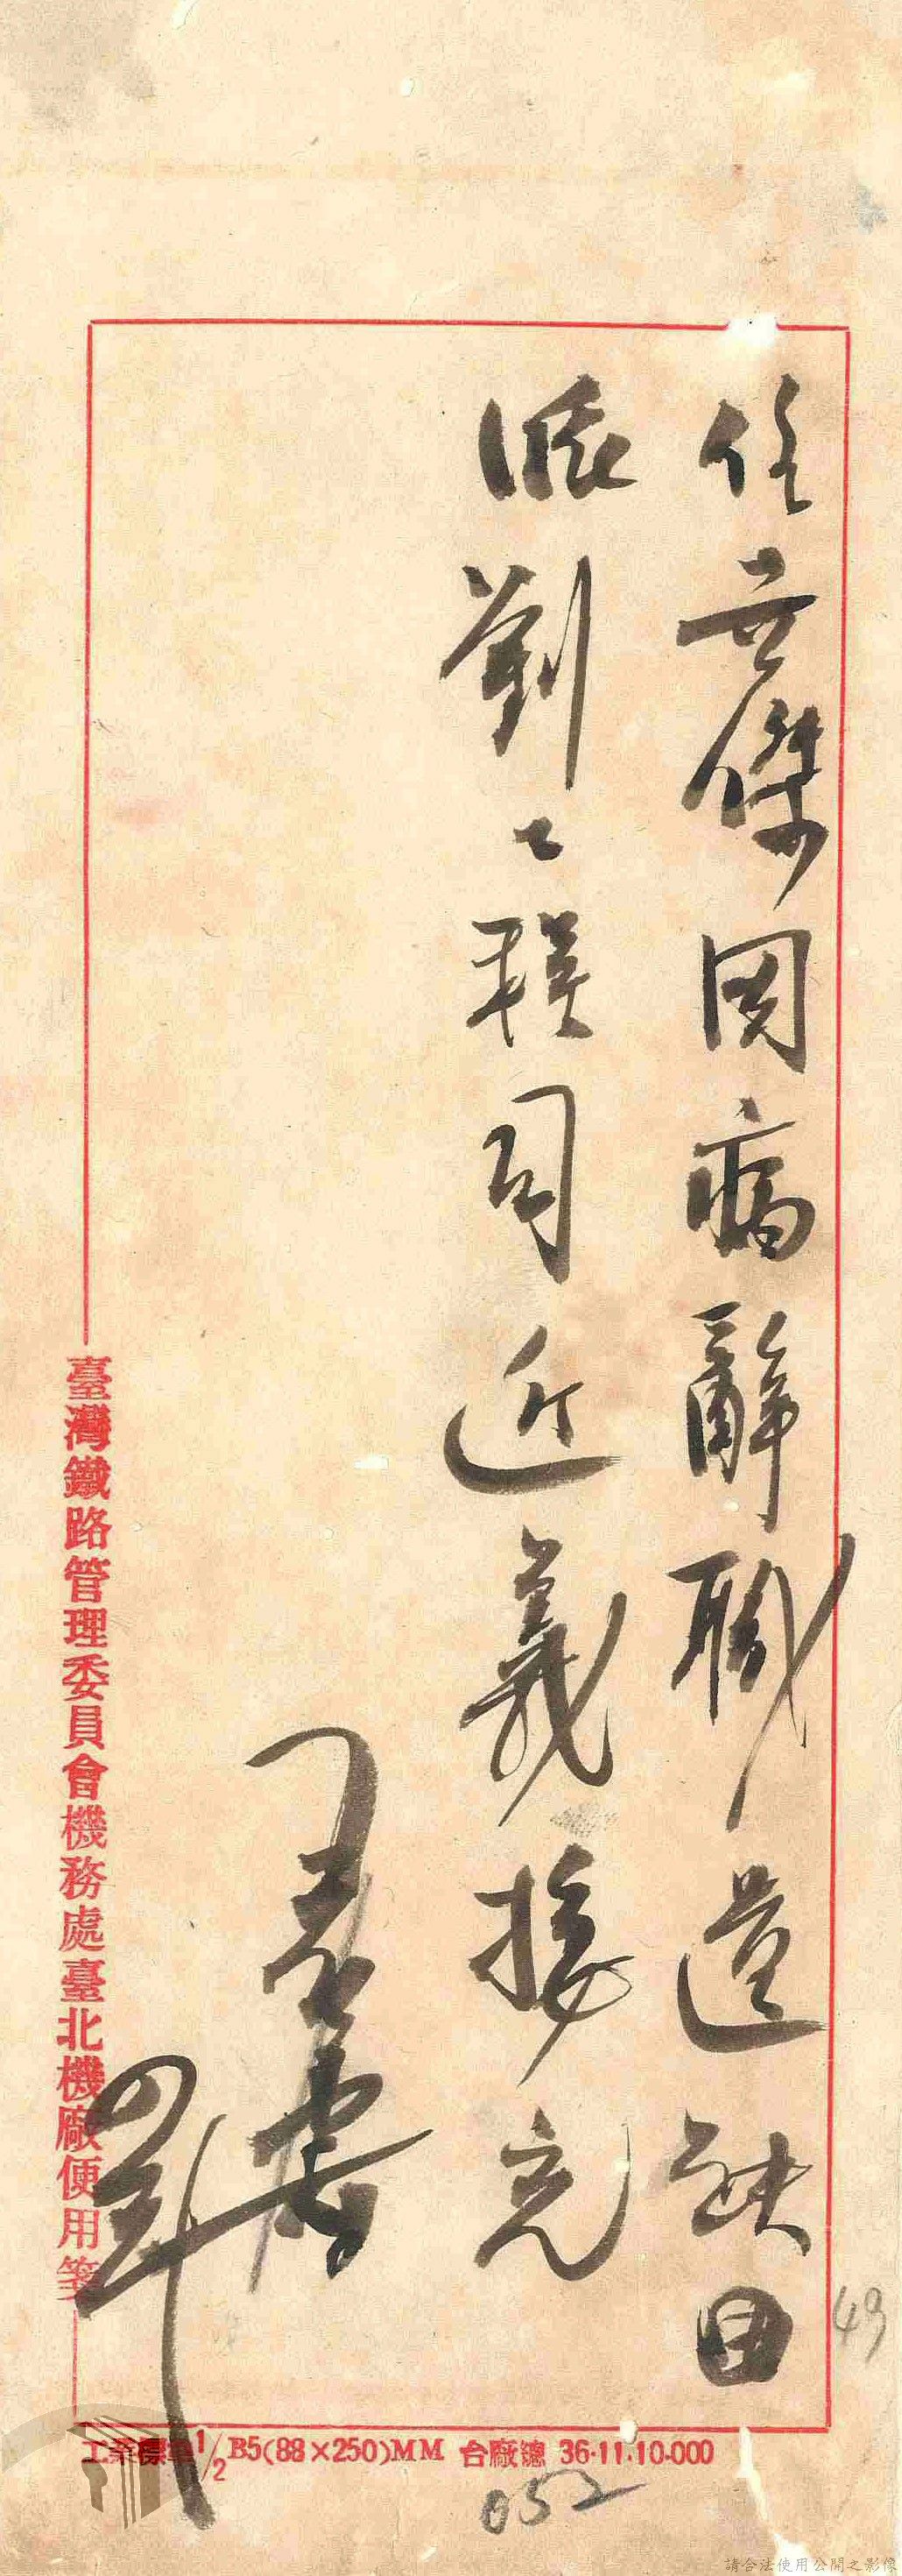 任世傑因病辭職遺缺由
派劉工務司近義接充
臺灣鐵路管理委員會機務處臺北機廠便用箋
工業標準1/2B5(88×250)MM 台廠總 36.11.10.000
49
052
請合法使用公開之影像